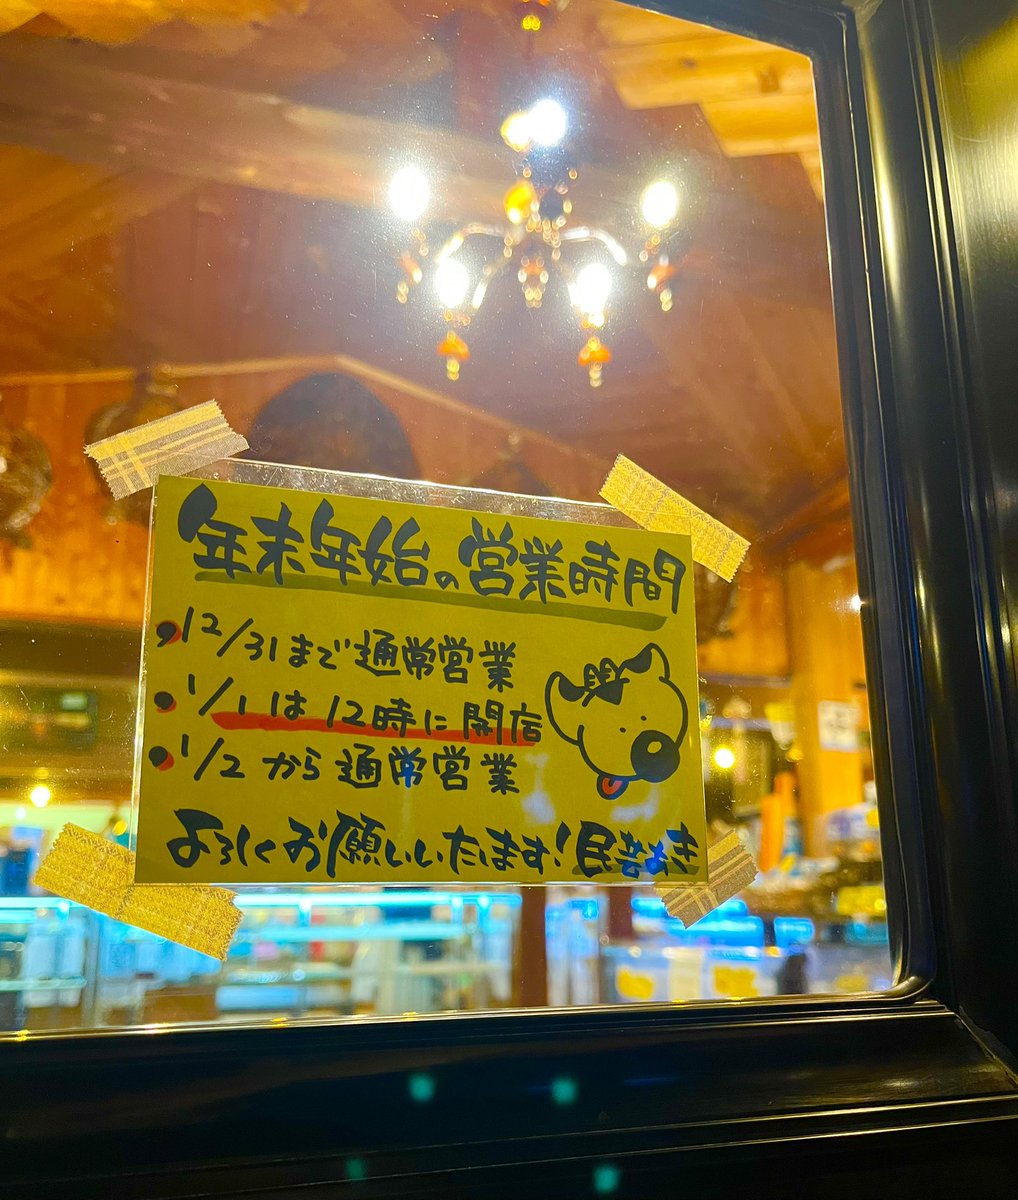 年末年始の営業時間
・12/31まで通常営業
・1/1は12時に開店
・1/2から通常営業
よろしくお願いいたします!民芸あき